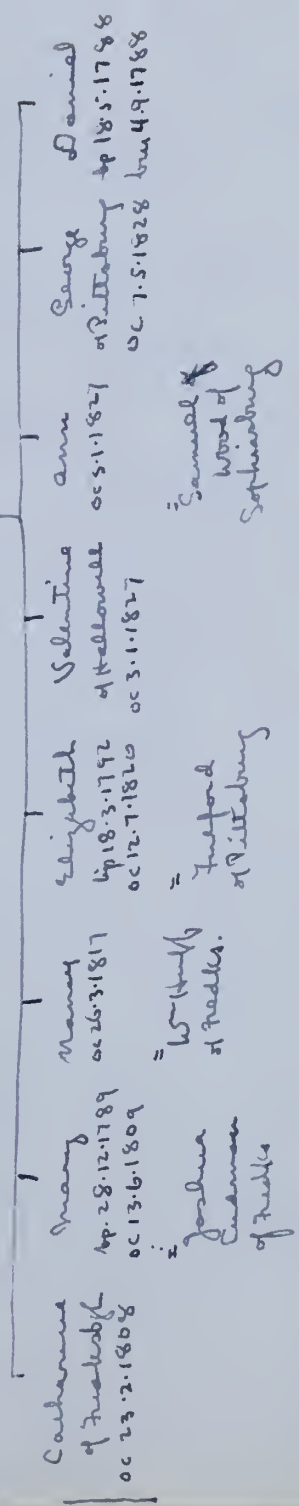 Catharine
of Fredksbgh
OC 23.2.1808
Mary
bp. 28.12.1789
OC 13.6.1809
=
Joshua
of Fredks
Nancy
OC 26.3.1817
=
Wm Huff
of Fredks.
Elizabeth
bp 18.3.1792
OC 12.7.1820
=
Fulford
of Pittsburg
Valentine
of Hallowell
OC 3.1.1827
Ann
OC 3.1.1827
=
Samuel
Wood of
Sophiasburg
George
of Pittsburg
OC 7.5.1828
Daniel
bp 18.5.1788
bur 4.9.1788